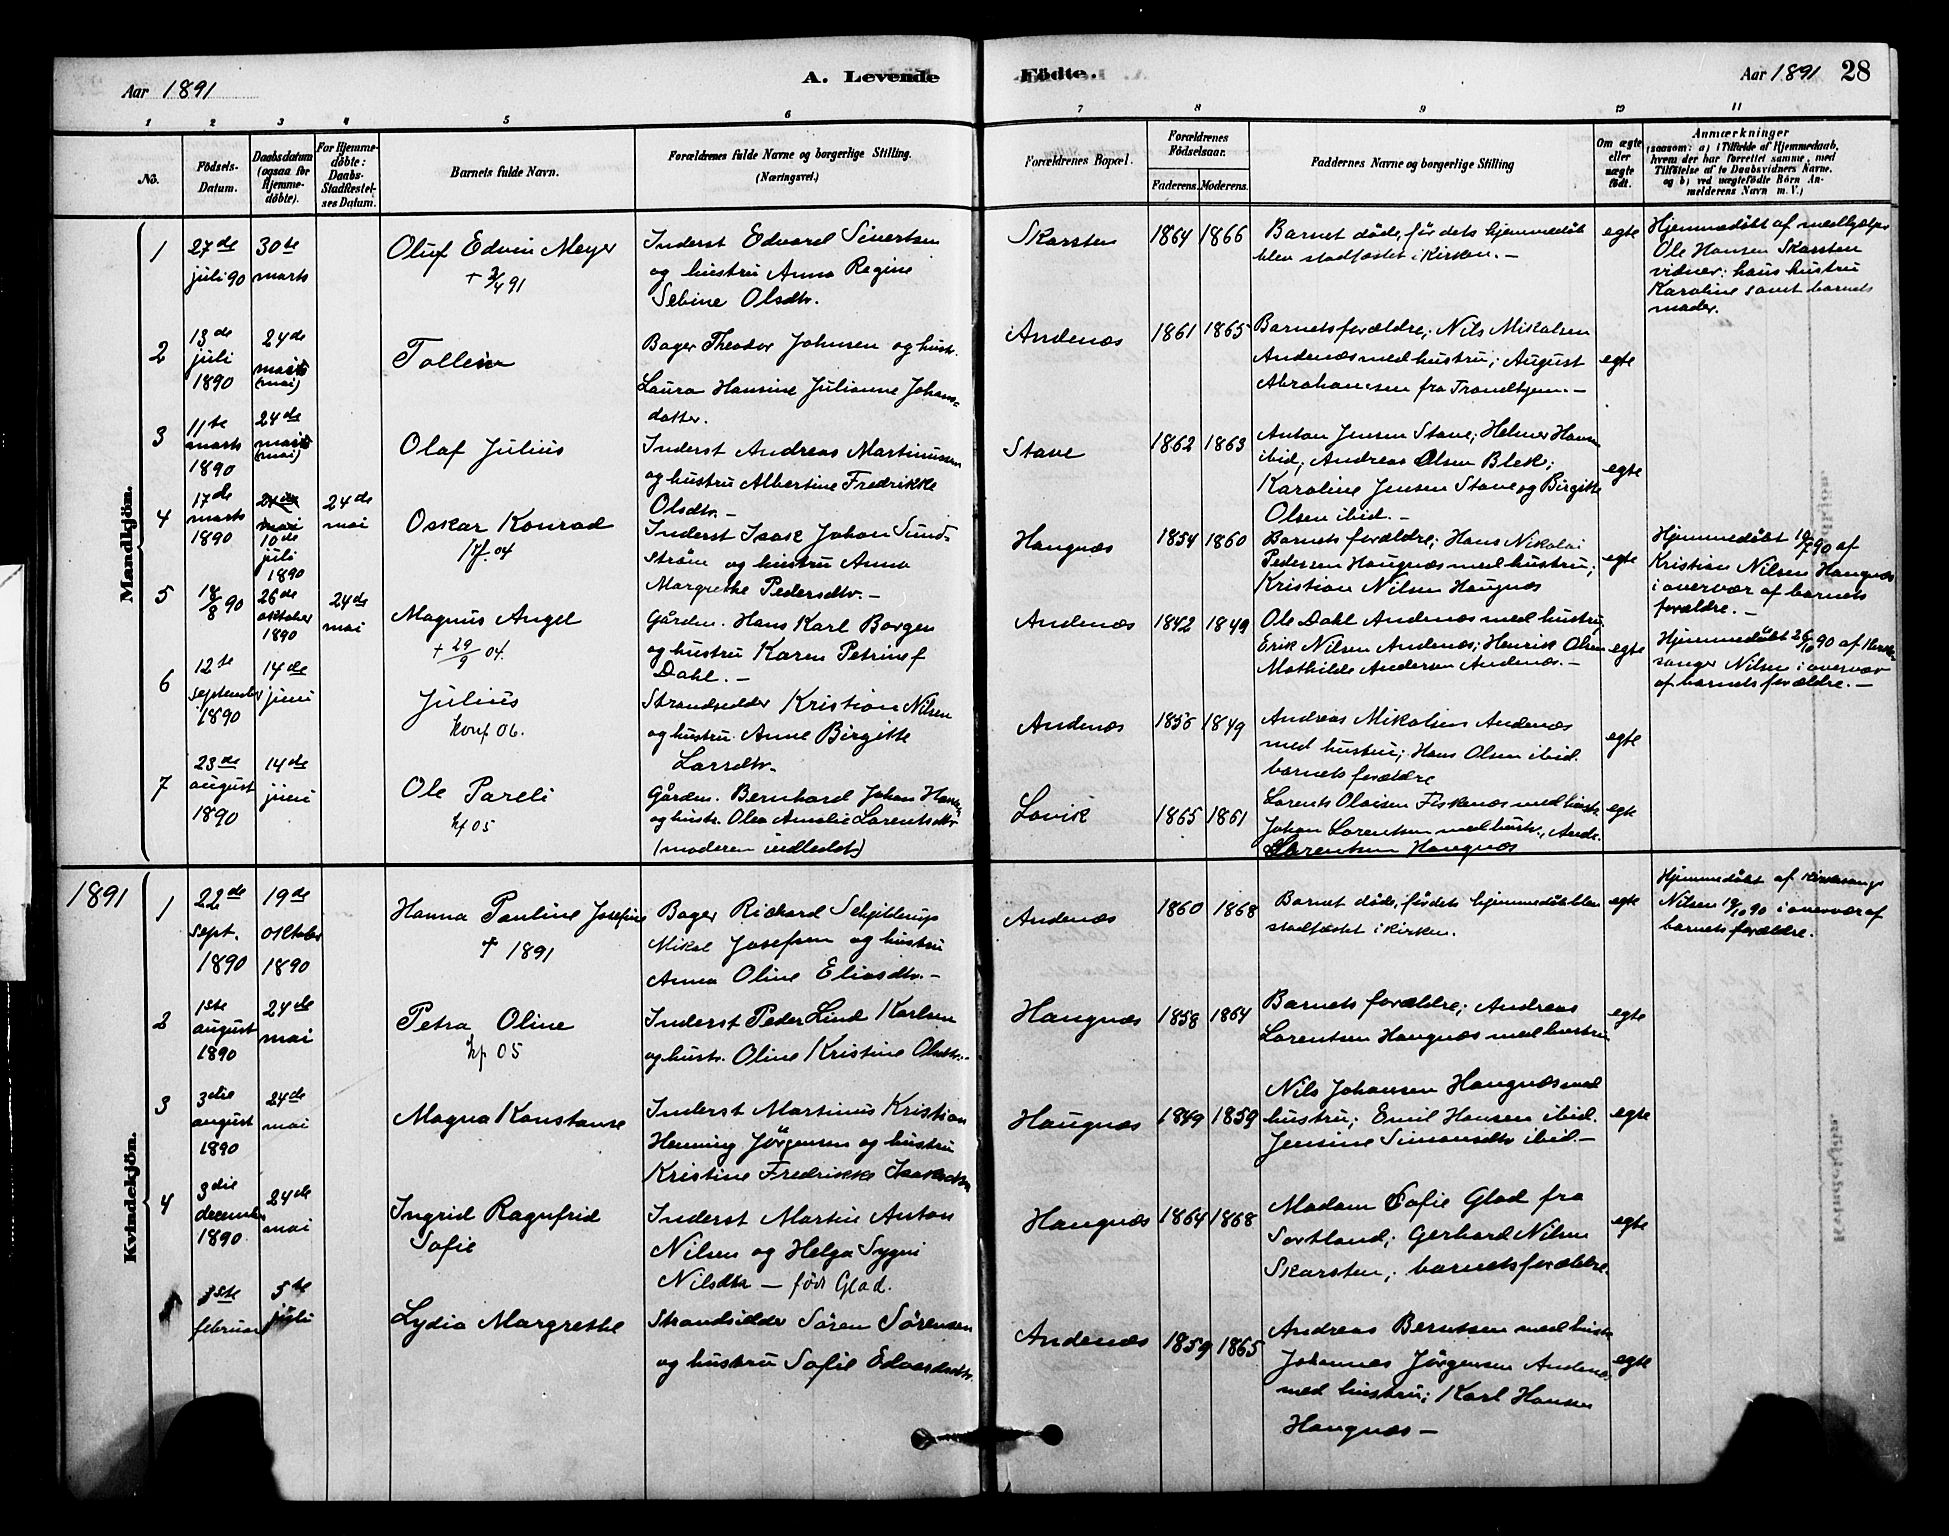 Aar 1891
A. Levende
Födte.
Aar 1891 28
1 2 3 4 5 6 7 8 9 10 11
No.
Födsels-Datum.
Daabsdatum (ogsaa for Hjemmedöbte).
For Hjemmedöbte: Daabs-Stadfæstelses Datum.
Barnets fulde Navn.
Forældrenes fulde Navne og borgerlige Stilling.
(Næringsvei.)
Forældrenes Bopæl.
Forældrenes Födselsaar.
Faderens. Moderens.
Faddernes Navne og borgerlige Stilling
Om ægte eller uægte födt.
Anmærkninger
(saasom: a) i Tilfælde af Hjemmedaab, hvem der har forrettet samme, med Tilföielse af to Daabsvidners Navne. og b) ved uægtefödte Börn Anmelderens Navn m. V.)
Mandkjön.
1 27de juli 90 30te marts
Oluf Edvin Meyer
Inderst Edvard Sivertsen
og hustru Anna Regine
Sebine Olsdtr.
Skarsten 1864 1866
Barnet døde, før dets hjemmedåb
blev stadfæstet i Kirken. —
egte
Hjemmedøbt af medhjelper
Ole Hansen Skarsten
vidner: hans hustru
Karoline samt barnets
moder.
2 13de juli 1890 24de (mai)
Bager Theodor Johnsen og hustr.
Laura Hansine Julianne Johans-
datter.
Andenæs 1861 1865
Barnets forældre; Nils Mikalsen
Andenæs med hustru; August
Abrahamsen fra Trondhjem. —
egte
3 11te marts 1890 24de (mai)
Olaf Julius
Inderst Andreas Martinussen
og hustru Albertine Fredrikke
Olsdtr. —
Stave 1862 1863
Anton Jensen Stave; Helmer Hansen
ibid; Andreas Olsen Blek;
Karoline Jensen Stave og Birgitte
Olsen ibid. —
egte
4 17de marts 1890 24de mai 10de juli 1890 24de mai
Oskar Konrad
04
Inderst Isak Johan Sund-
strøm og hustru Anna
Margrethe Pedersdtr. —
Haugnæs 1854 1860
Barnets forældre; Hans Nikolai
Pedersen Haugnæs med hustru;
Kristian Nilsen Haugnæs
egte
Hjemmedøbt 10/7 90 af
Kristian Nilsen Haugnæs
i overvær af barnets
forældre. —
5 18/8 90 26de oktober 1890 24de mai
Magnus Angel
+ 29/9 04.
Gårdm. Hans Karl Borgen
og hustru Karen Petrine f
Dahl. —
Andenæs 1842 1849
Ole Dahl Andenæs med hustru;
Erik Nilsen Andenæs; Henrik Olsen
Mathilde Andersen Andenæs. —
egte
Hjemmedøbt 26/10 90 af Kirke-
sanger Nilsen i overvær
af barnets forældre. —
6 12te september 1890 14de juni
Julius
Konf 06.
Strandsidder Kristian Nilsen
og hustru. Anne Birgitte
Larsdtr.
Andenæs 1856 1849
Andreas Mikalsen Andenæs
med hustru; Hans Olsen ibid.
barnets forældre
egte
7 23de august 1890 14de juni
Ole Pareli
kf 05
Gårdm. Bernhard Johan Hansen
og hustr. Olea Amalie Lorentsdtr
(moderen indledet)
Lovik 1865 1861
Lorents Olaisen Fiskenæs med hustr
Johan Lorentsen med hustr., Ande.
Lorentsen Haugnæs
egte
1891
Kvindekjön.
1 22de sept. 1890 19de oktober 1890
Hanna Pauline Josefine
+ 1891
Bager Richard Schjelderup
Mikal Josefsen og hustru
Anna Oline Eliasdtr. —
Andenæs 1860 1868
Barnet døde, før dets hjemmedåb blev
stadfæstet i kirken.
egte
Hjemmedøbt af Kirkesanger
Nilsen 19/10 90 i overvær af
barnets forældre.
2 1ste august 1890 24de mai
Petra Oline
kf 05
Inderst Peder Lind Karlsen
og hustr. Oline Kristine Olsdtr. —
Haugnæs 1858 1864
Barnets forældre; Andreas
Lorentsen Haugnæs med hustru
egte
3 3die august 1890 24de mai
Magna Konstanse
Inderst Martinus Kristian
Henning Jørgensen og hustru
Kristine Fredrikke Isaksdtr
Haugnæs 1849 1859
Nils Johansen Haugnæs med
hustru; Emil Hansen ibid.
Jensine Simonsdtr ibid —
egte
4 3die december 1890. 24de mai
Ingrid Ragnfrid
Sofie
Inderst Martin Anton
Nilsen og Helga Sygni
Nilsdtr — født Glad.
Haugnæs 1864 1868
Madam Sofie Glad fra
Sortland; Gerhard Nilsen
Skarsten; barnets forældre.
egte
1ste februar 5te juli
Lydia Margrethe
Strandsidder Søren Sørensen
og hustru Sofie Edvardsdtr.
Andenæs 1859 1865
Andreas Berntsen med hustr
Johannes Jørgensen Andenæs
med hustru; Karl Hansen
Haugnæs —
egte